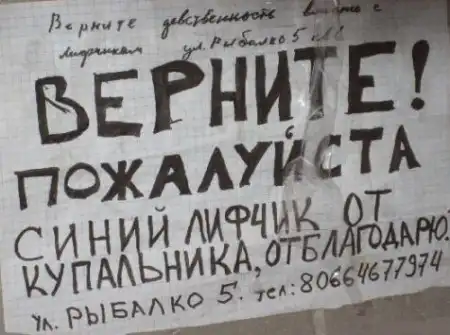 Верните девственность вместе с
лифчиком ул. Рыбалко 5
ВЕРНИТЕ!
ПОЖАЛУЙСТА
СИНИЙ ЛИФЧИК ОТ
КУПАЛЬНИКА, ОТБЛАГОДАРЮ.
УЛ. РЫБАЛКО 5. тел: 80664677974